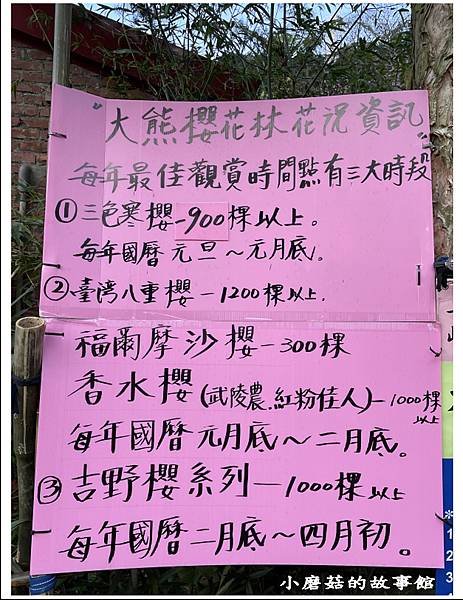 "大熊櫻花林花況資訊"
每年最佳觀賞時間點有三大時段
①三色寒櫻-900棵以上。
每年國曆元旦～元月底。
②臺灣八重櫻－1200棵以上.
福爾摩沙櫻－300棵
香水櫻(武陵農.紅粉佳人)－1000棵以上
每年國曆元月底～二月底。
③吉野櫻系列－1000棵以上
每年國曆二月底～四月初。
*
1
2
3
小蘑菇的故事館